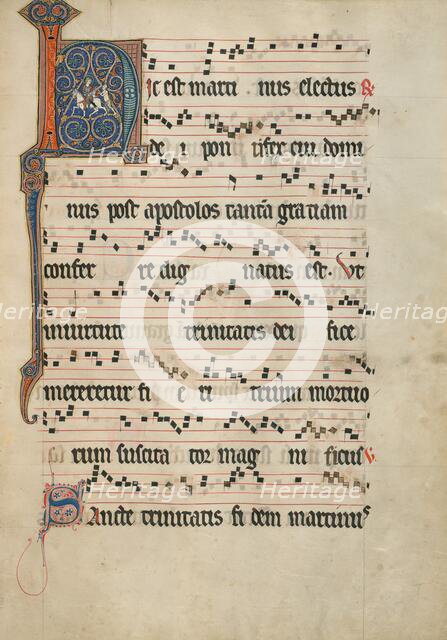 Hic est marti nus electus R
de pon tifex cui domi
nus post apostolos tantā gratiam
confer re dig natus est. Vt
in uirtute trinitatis dei fice
mereretur fi e ri trium mortuo
rum suscita tor mag ni ficus V
Sancte trinitatis fi dem martinus
Heritage Heritage Heritage
Heritage Heritage Heritage
Heritage Heritage Heritage